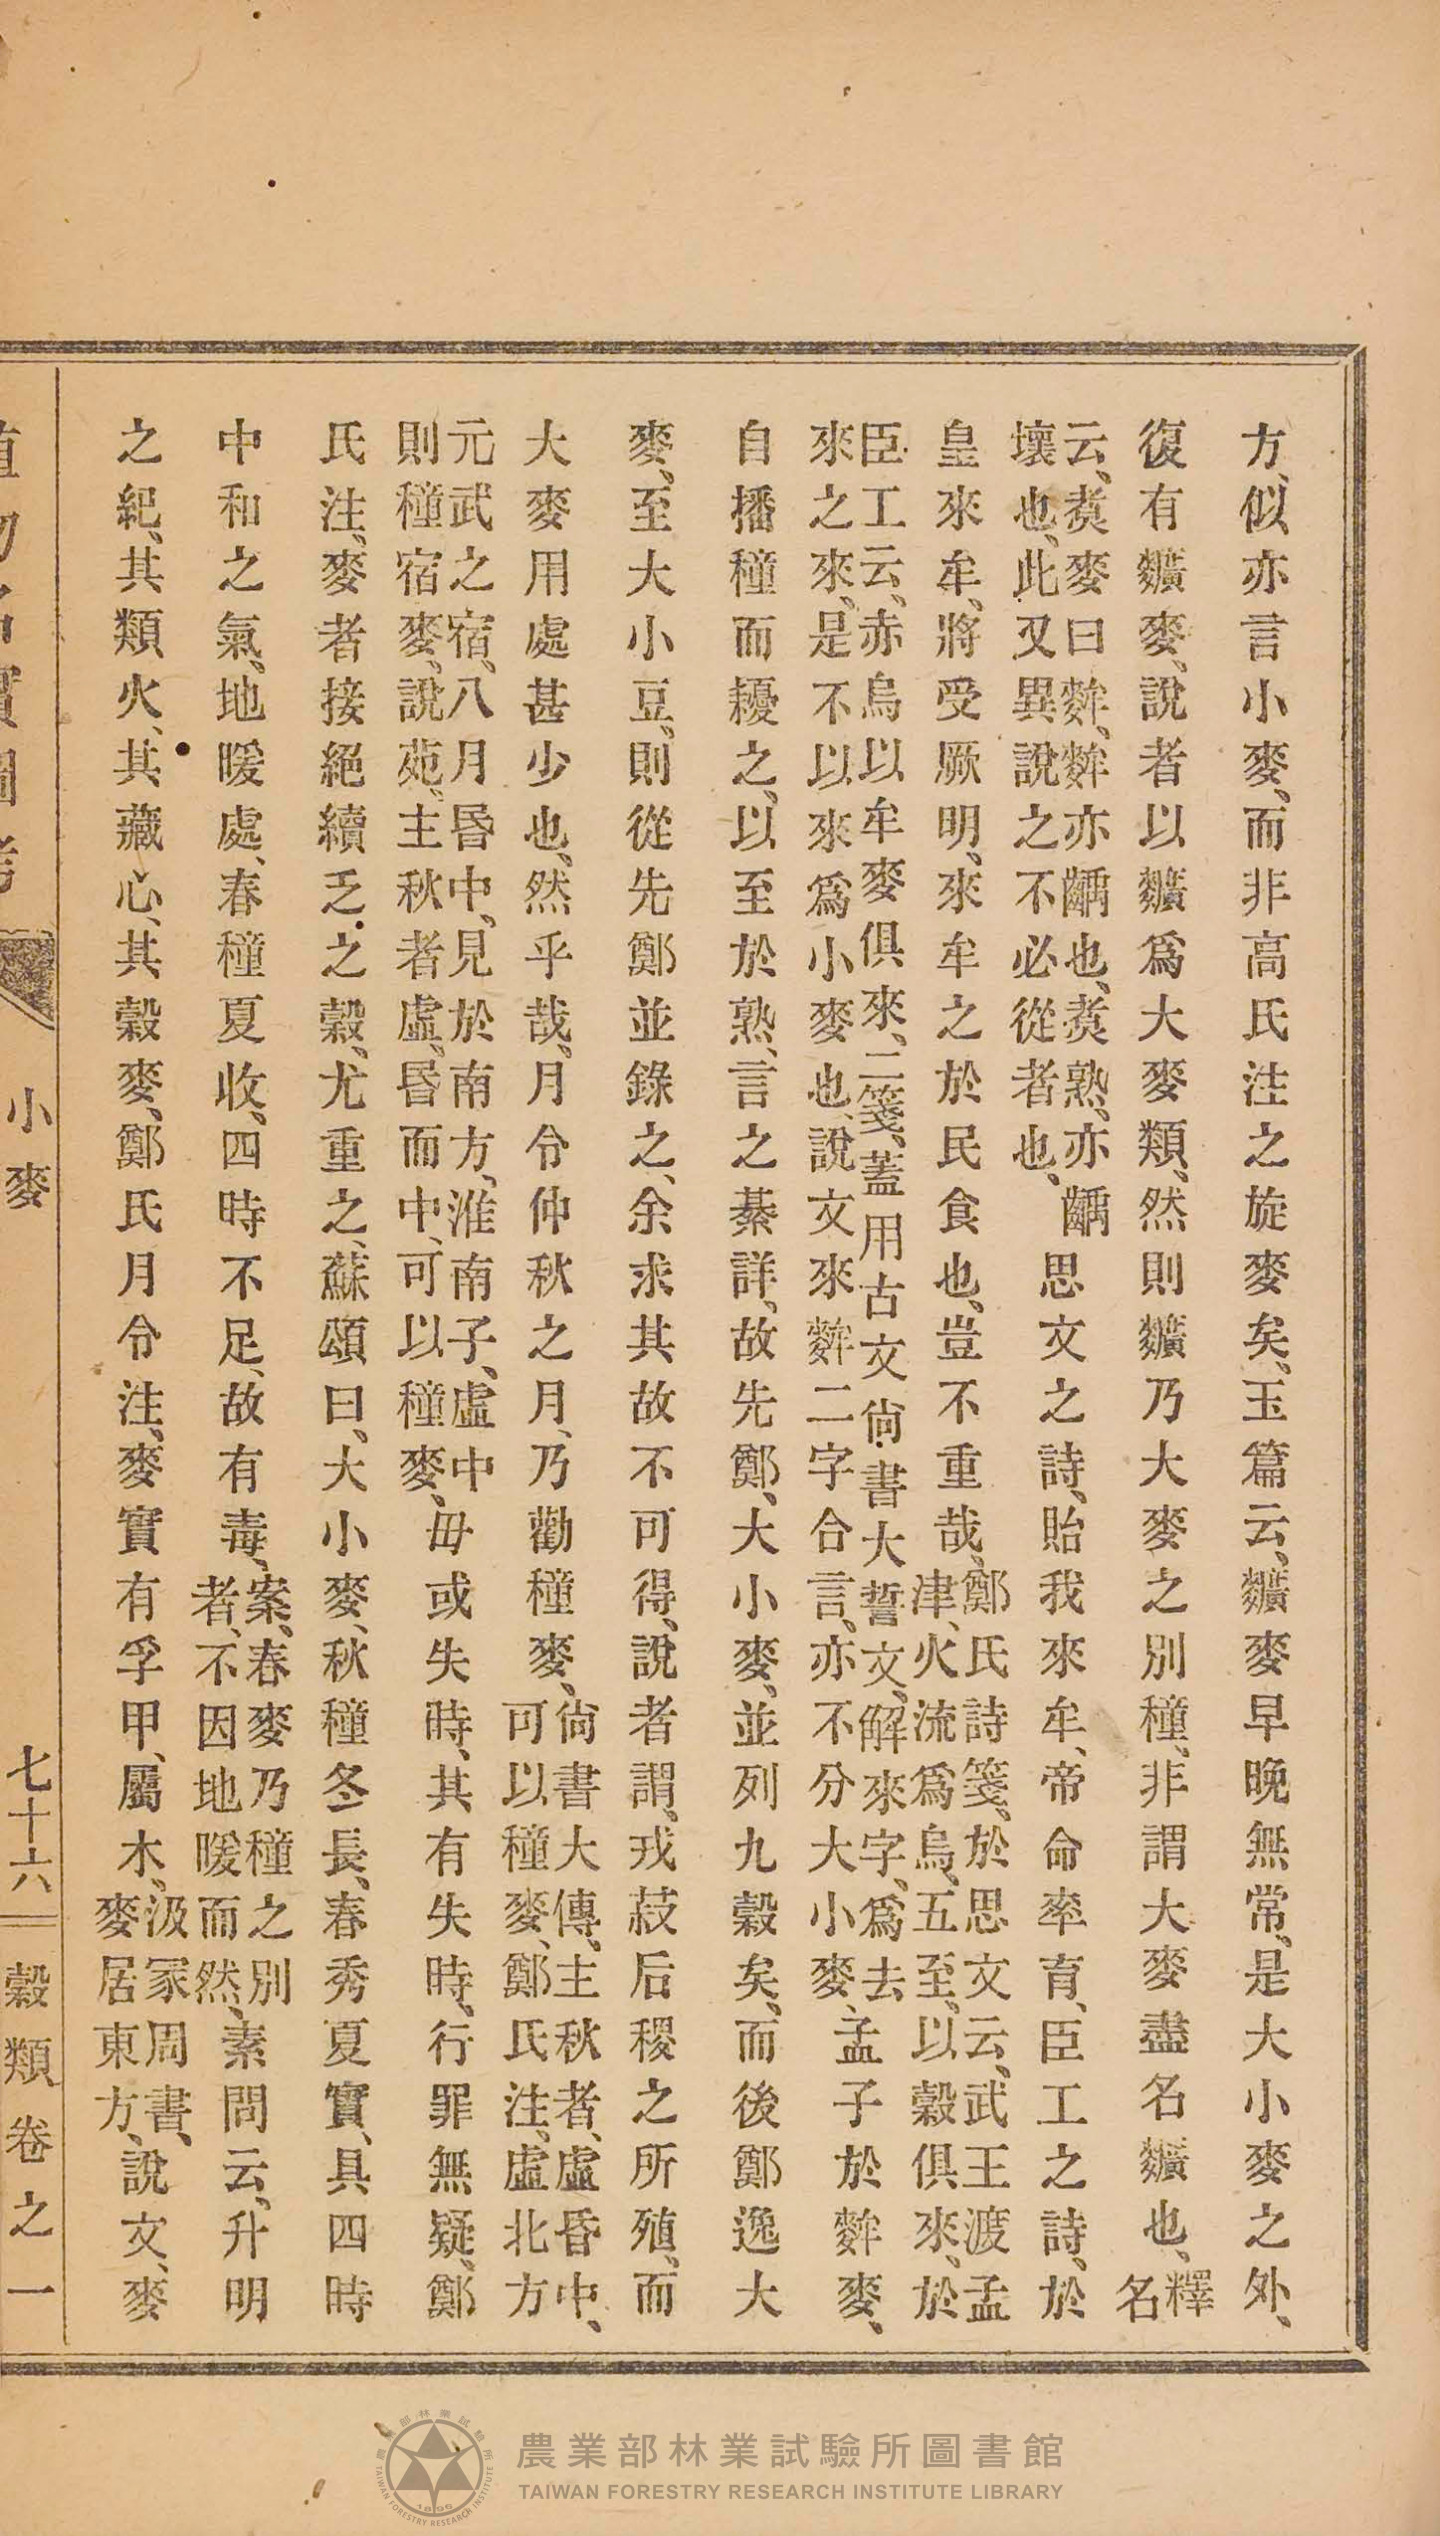 方、似亦言小麥、而非高氏注之旋麥矣、玉篇云、䵃麥早晚無常、是大小麥之外、
復有䵃麥、說者以䵃爲大麥類、然則䵃乃大麥之別種、非謂大麥盡名䵃也、釋名
云、煑麥曰麰、麰亦齲也、煑熟、亦齲
壞也、此又異說之不必從者也、
思文之詩、貽我來牟、帝命率育、臣工之詩、於
皇來牟、將受厥明、來牟之於民食也、豈不重哉、
鄭氏詩箋、於思文云、武王渡孟
津、火流爲烏、五至、以穀俱來、於
臣工云、赤烏以牟麥俱來、二箋、蓋用古文尙書大誓文、解來字、爲去
來之來、是不以來爲小麥也、說文來麰二字合言、亦不分大小麥、
孟子於麰麥、
自播種而耰之、以至於熟、言之綦詳、故先鄭、大小麥、並列九穀矣、而後鄭逸大
麥、至大小豆、則從先鄭並錄之、余求其故不可得、說者謂、戎菽后稷之所殖、而
大麥用處甚少也、然乎哉、月令仲秋之月、乃勸種麥、
尙書大傳、主秋者、虛昏中、
可以種麥、鄭氏注、虛北方
元武之宿、八月昬中、見於南方、淮南子、虛中
則種宿麥、說苑、主秋者虛、昬而中、可以種麥、
毋或失時、其有失時、行罪無疑、鄭
氏注、麥者接絕續乏之穀、尤重之、蘇頌曰、大小麥、秋種冬長、春秀夏實、具四時
中和之氣、地暖處、春種夏收、四時不足、故有毒、
案、春麥乃種之別
者、不因地暖而然、
素問云、升明
之紀、其類火、其藏心、其穀麥、鄭氏月令注、麥實有孚甲、屬木、
汲冢周書、
麥居東方、
說文、麥
小麥
七十六
穀類卷之一
農業部林業試驗所圖書館
TAIWAN FORESTRY RESEARCH INSTITUTE LIBRARY
農業部林業試驗所
TAIWAN FORESTRY RESEARCH INSTITUTE
1895